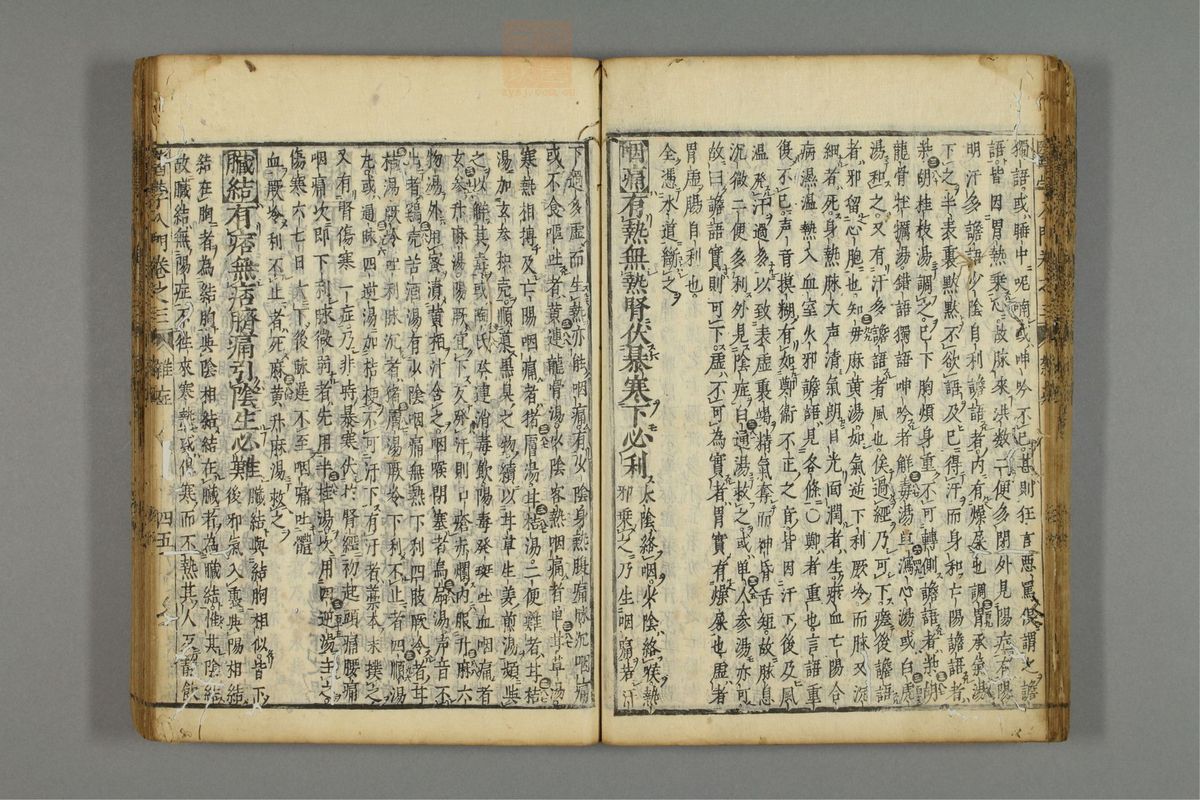 獨語或睡中呢喃或呻吟不已甚則狂言惡罵俱謂之譫
語皆因胃熱乘心故脉來洪數二便多閉外見陽症太陽
明汗多譫語少陰自利譫語者內有燥屎也調胃承氣湯
下之半表裏默默不欲語及已得汗而身和亡陽譫語者
柴胡桂枝湯調之已下胸煩身重不可轉側譫語者柴胡
龍骨牡蠣湯錯語獨語呻吟者解毒湯瀉心湯或白虎
湯和之又有汗多譫語者風也俟過經乃可下瘥後譫語
者邪留心胞也知母麻黃湯如氣逆下利厥冷而脉又沉
細者死身熱脉大声清氣朗目光面潤者生衂血亡陽合
病濕温熱入血室火邪譫語見各條○鄭者重也言語重
復不已声音摸糊有如鄭術不正之音皆因汗下後及風
温發汗過多以致表虛裏竭精氣奪而神昏舌短故脉息
沉微二便多利外見陰症白通湯救之或單人參湯亦可
故曰譫語實則可下虛不可為實者胃實有燥屎也虛者
胃虛腸自利也
全憑水道緻之
咽痛有熱無熱腎伏暴寒下必利 太陰絡咽少陰絡喉熱
邪乘之乃生咽痛若汗
下過多虛而生熱亦能咽痛有少陰身熱肢痛脉沉咽痛
或不食嘔吐者黃連龍骨湯少陰客熱咽痛者甘草湯
寒熱相搏及亡陽咽痛者猪膚湯甘桔湯二便難者甘桔
湯加玄參枳壳順墓黑臭之物續以甘草生姜煎湯頻與
之以解其毒或陶氏本連消毒飲陽毒發斑吐血咽痛者
玄參升麻湯陽厥宜下久發汗則口瘡赤爛內服升麻六
物湯外用蜜漬黃栢汁含之咽喉閉塞者烏扇湯声音不
出者鷄壳苦酒湯有少陰咽痛無熱下利四肢厥冷者甘
桔湯厥冷下利脉沉者猪膚湯厥冷下利不止者四順湯
丸或通脉四逆湯加桔梗不可汗下有汗者藁本末撲之
又有腎傷寒一症乃非時暴寒伏於腎經初起頭痛腰痛
咽痛次即下利脉微弱者先用半桂湯次用四逆湯主之
傷寒六七日大下後脉遲不至咽痛吐膿
血厥冷利不止者死麻黃升麻湯救之
臟結有痞無痞臍痛引陰生必難 臟結與結胸相似皆下
後邪氣入裏與陽相結
結在胸者為結胸與陰相結結在臟者為臟結惟其陰結
故臟結無陽症不往來寒熱或但寒而不熱其人反靜飲
醫學入門卷之三 雜症 四五